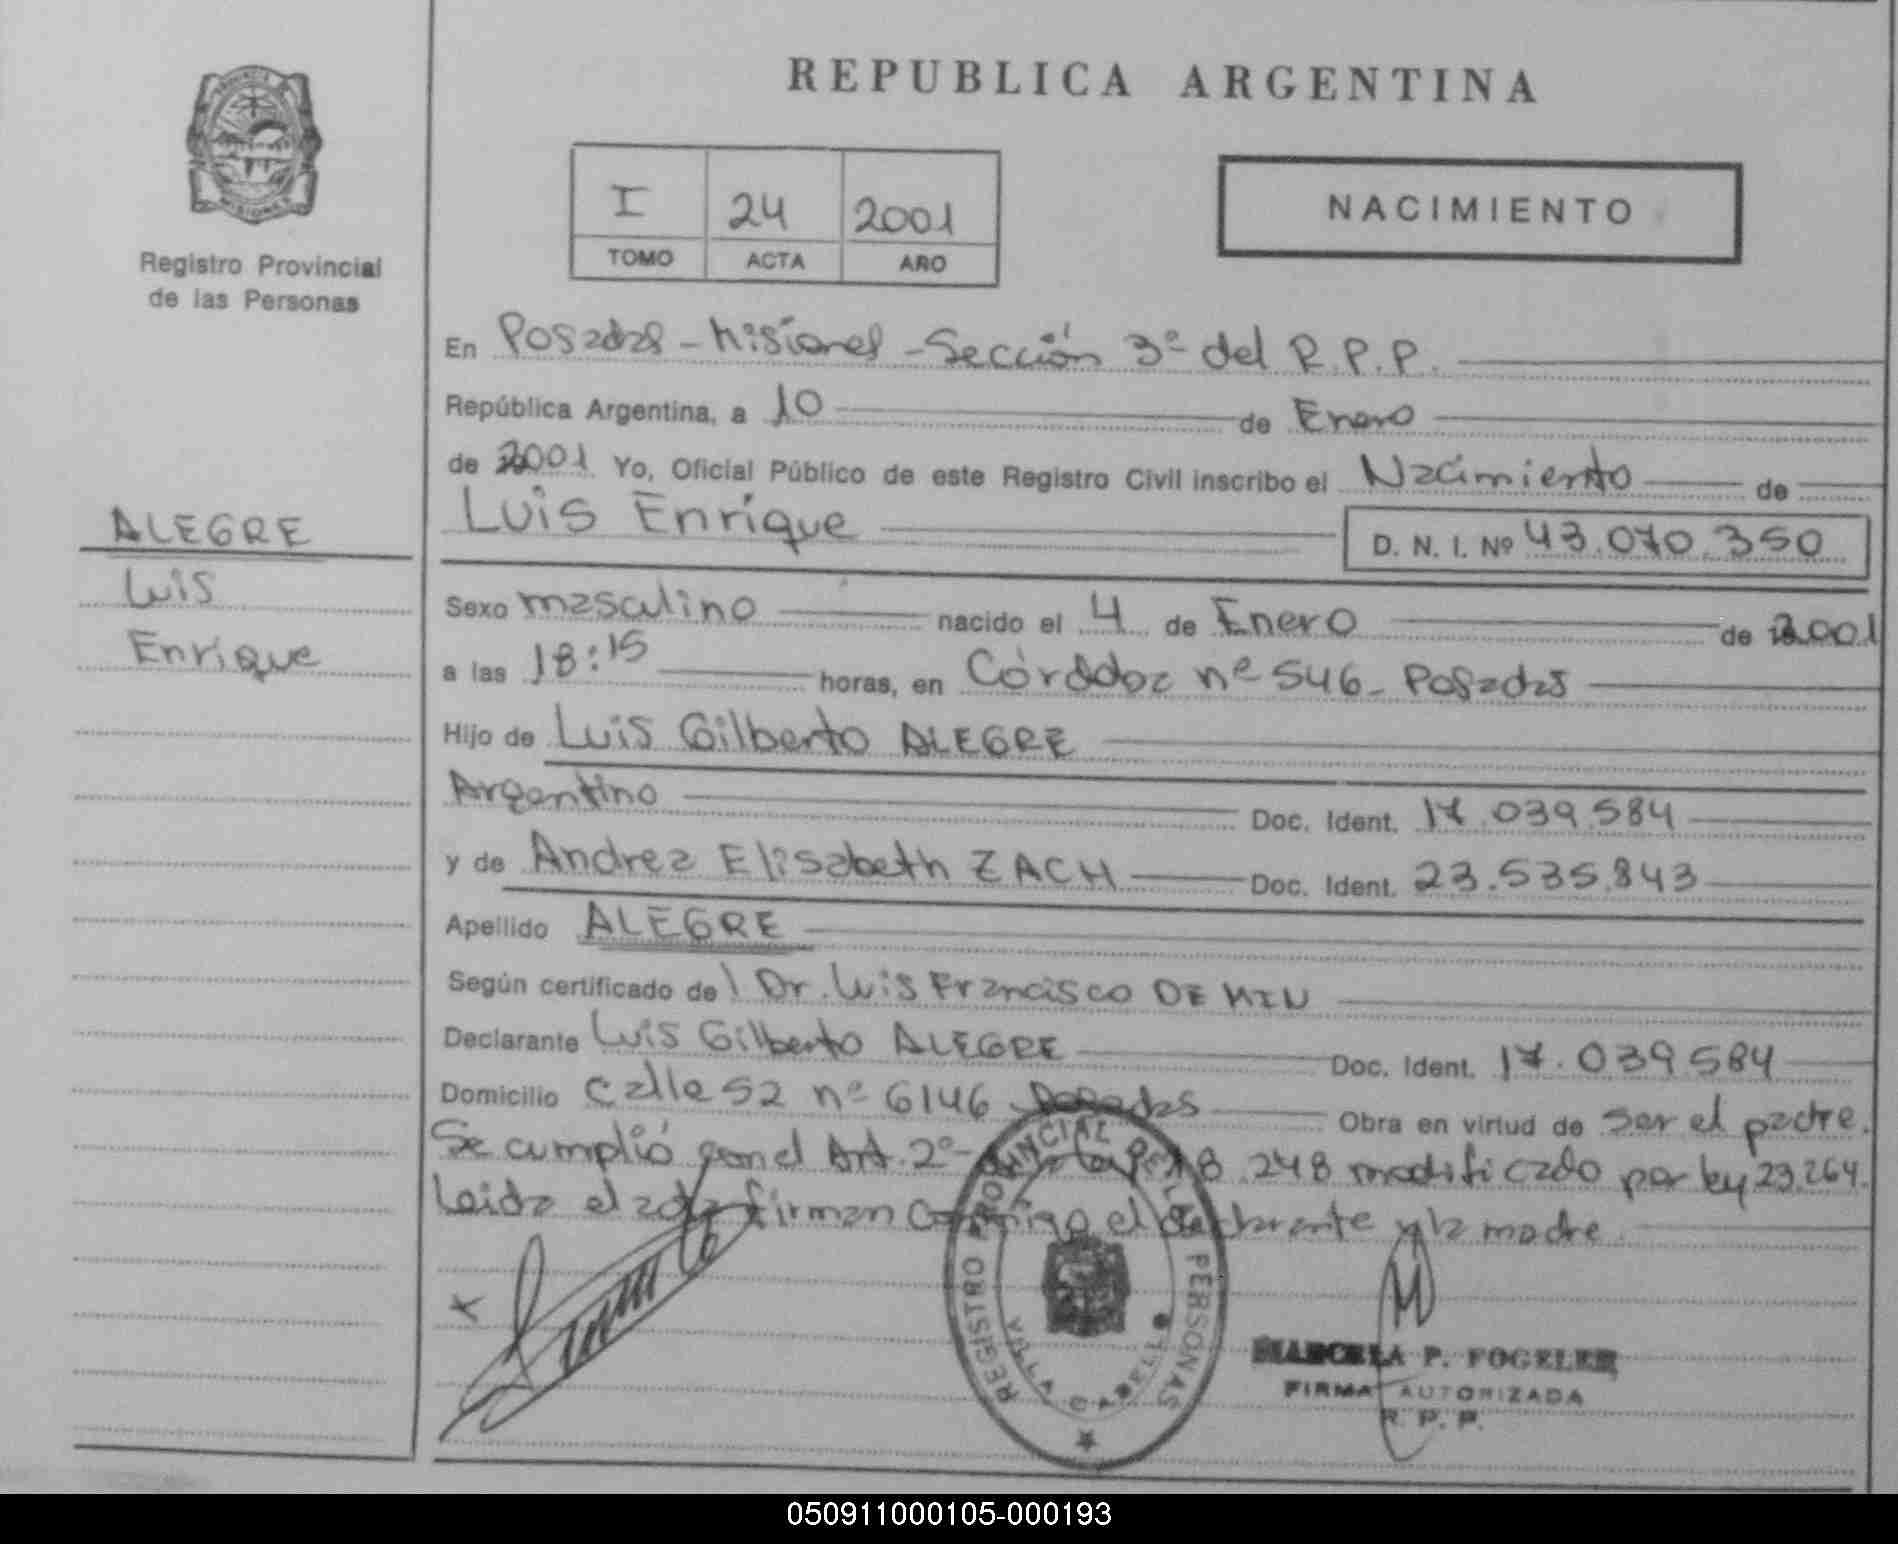 REPUBLICA ARGENTINA
PROVINCIA
MISIONES
Registro Provincial
de las Personas
I 24 2001
TOMO ACTA AÑO
NACIMIENTO
ALEGRE
Luis
Enrique
En Posadas - Misiones - Sección 3º del R.P.P.
República Argentina, a 10 de Enero
de 2001 Yo, Oficial Público de este Registro Civil inscribo el Nacimiento de
Luis Enrique D. N. I. Nº 43.070.350
Sexo masculino nacido el 4 de Enero de 2001
a las 18:15 horas, en Córdoba nº 546 - Posadas
Hijo de Luis Gilberto ALEGRE
Argentino Doc. Ident. 17.039.584
y de Andrea Elisabeth ZACH Doc. Ident. 23.535.843
Apellido ALEGRE
Según certificado del Dr. Luis Francisco DEMIN
Declarante Luis Gilberto ALEGRE Doc. Ident. 17.039.584
Domicilio Calle 52 nº 6146 Posadas Obra en virtud de ser el padre.
Se cumplió con el Art. 2º 18.248 modificado por ley 23.264.
Leida el acta firman conmigo el declarante y la madre.
REGISTRO PROVINCIAL DE LAS PERSONAS
VILLA CABELLO
MARCELA P. FOGELER
FIRMA AUTORIZADA
R. P. P.
050911000105-000193